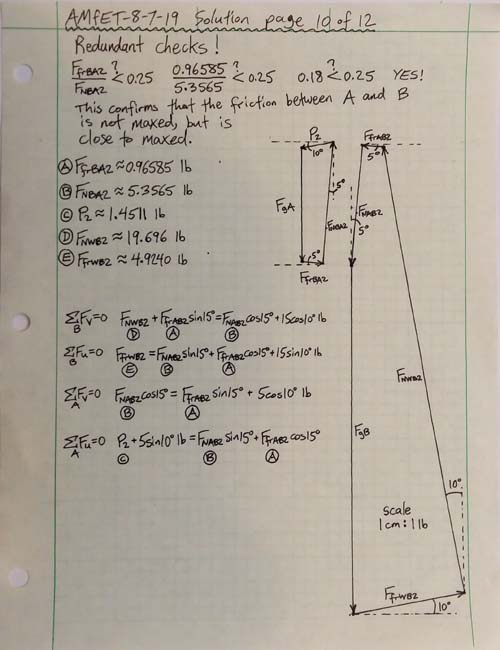 AMfET-8-7-19 Solution page 10 of 12
Redundant checks!
F_frBA2/F_NBA2 <? 0.25 0.96585/5.3565 <? 0.25 0.18 <? 0.25 YES!
This confirms that the friction between A and B
is not maxed, but is
close to maxed.
Ⓐ F_frBA2 ≈ 0.96585 lb
Ⓑ F_NBA2 ≈ 5.3565 lb
Ⓒ P₂ ≈ 1.4511 lb
Ⓓ F_NWB2 ≈ 19.696 lb
Ⓔ F_frWB2 ≈ 4.9240 lb
P₂
10°
5°
F_gA
F_NBA2
5°
F_frBA2
F_frAB2
5°
F_NAB2
5°
F_NWB2
F_gB
10°
scale
1cm : 1 lb
F_frWB2
10°
∑_B F_v=0 F_NWB2 + F_frAB2 sin15° = F_NAB2 cos15° + 15cos10° lb
Ⓓ Ⓐ Ⓑ
∑_B F_u=0 F_frWB2 = F_NAB2 sin15° + F_frAB2 cos15° + 15sin10° lb
Ⓔ Ⓑ Ⓐ
∑_A F_v=0 F_NAB2 cos15° = F_frAB2 sin15° + 5cos10° lb
Ⓑ Ⓐ
∑_A F_u=0 P₂ + 5sin10° lb = F_NAB2 sin15° + F_frAB2 cos15°
Ⓒ Ⓑ Ⓐ